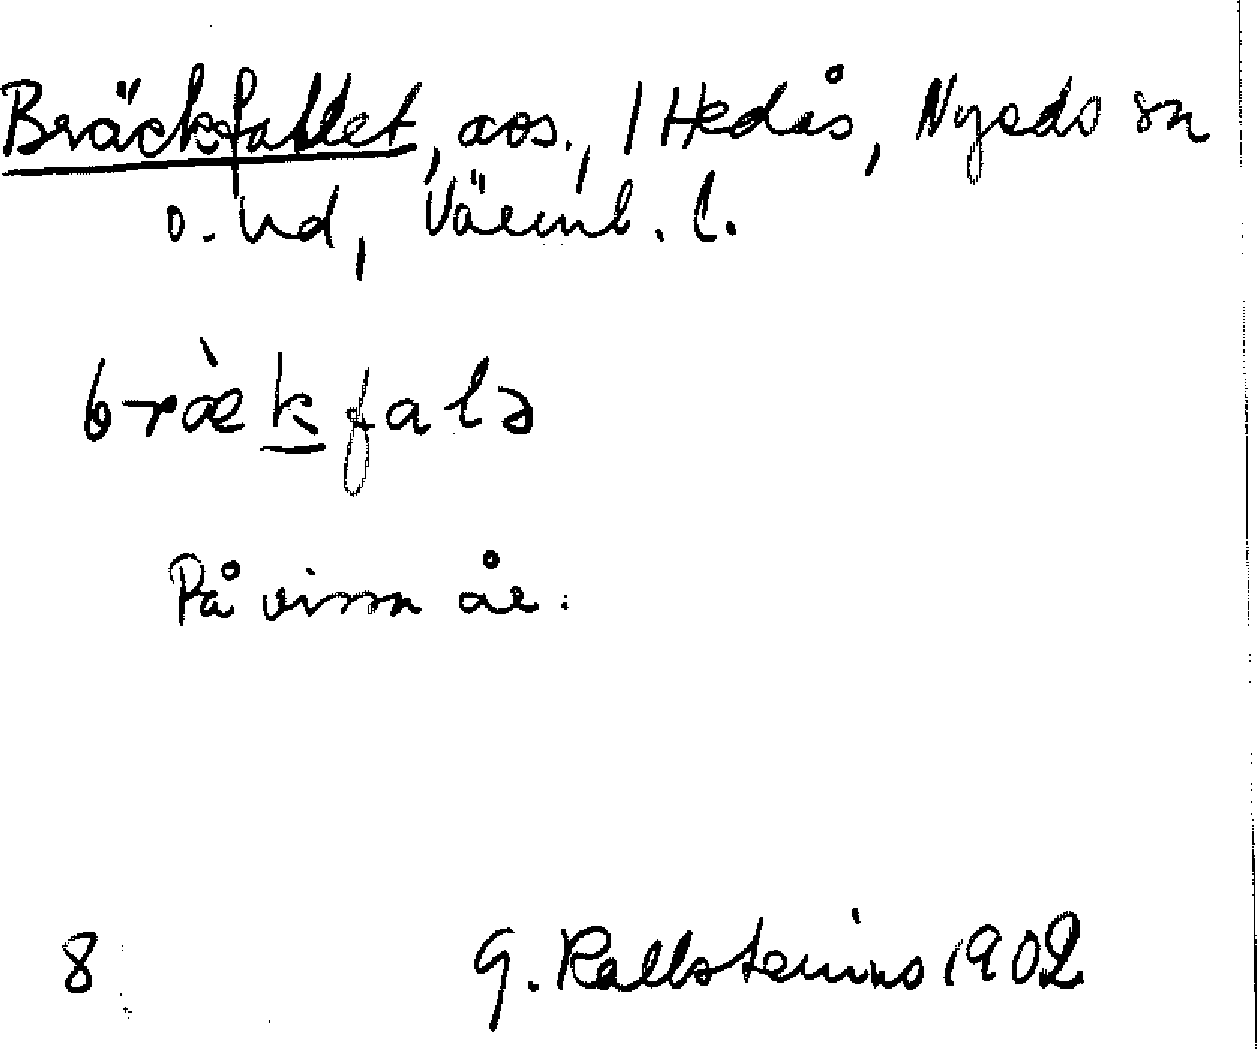 Bräckfallet, aos., 1 Hedås, Nyeds sn
o. hd, Värml. l.
bræ̀kfalə
På vissa år.
8 G. Kallstenius 1902